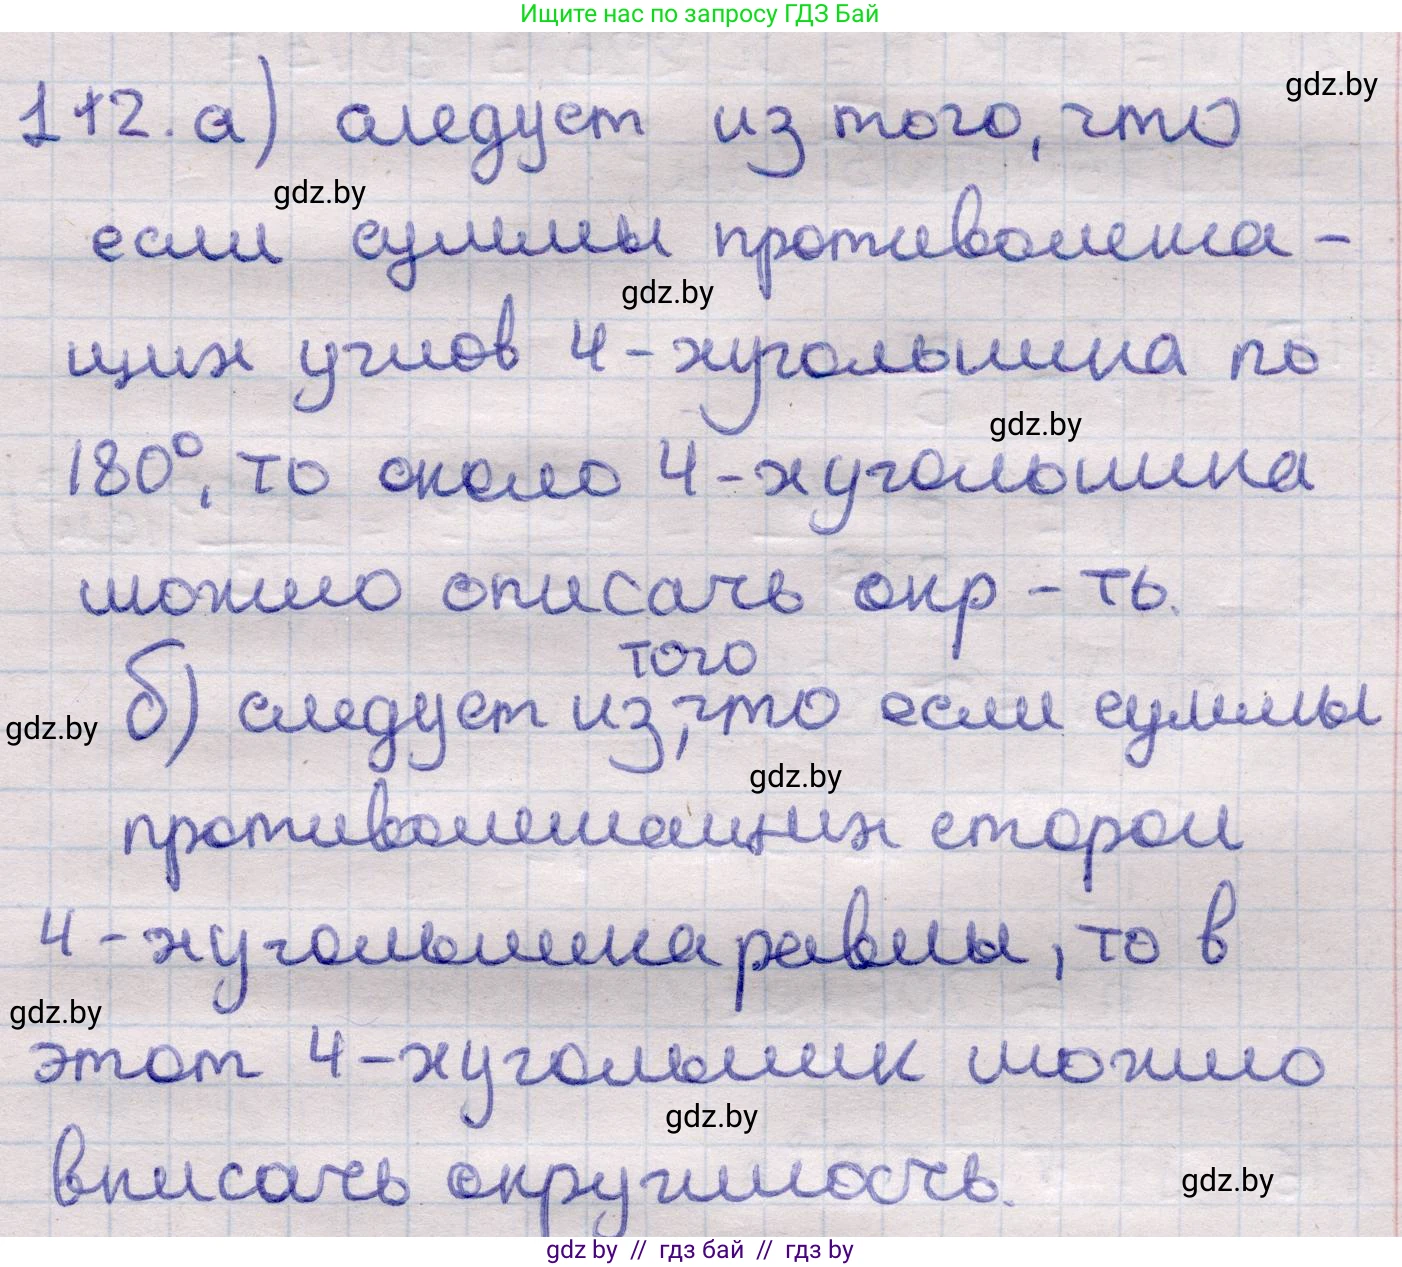 Ищите нас по запросу ГДЗ Бай
112. а) следует из того, что
gdz.by
gdz.by
если суммы противолежа-
gdz.by
щих углов 4-хугольника по
gdz.by
180°, то около 4-хугольника
можно описать окр-ть.
того
б) следует из, что если суммы
gdz.by
gdz.by
противолежащих сторон
4-хугольника равны, то в
gdz.by
этот 4-хугольник можно
gdz.by
вписать окружность.
gdz.by
gdz by // гдз бай // гдз by